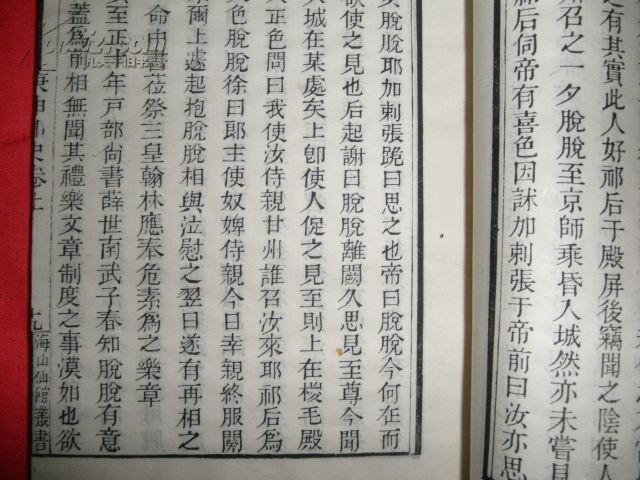 之有其實此人好祁后于殿屏後竊聞之陰使人
知召之一夕脫脫至京師乘昏入城然亦未嘗見
祁后伺帝有喜色因誅加剌張于帝前曰汝亦思
脫脫耶加剌張跪曰思之也帝曰脫脫今何在而
欲使之見也后起謝曰脫脫離闕久思見至尊今聞
城在某處矣上卽使人促之見至則上在椶毛殿
正色問曰我使汝侍親甘州誰召汝來耶祁后爲
色脫脫徐曰郞主使奴婢侍親今日幸親終服闋
爾上遽起抱脫脫相與泣慰之翌日遂有再相之
命中書莅祭三皇翰林應奉危素爲之樂章
至正十年戸部尙書薛世南武子春知脫脫有意
蓋爲前相無聞其禮樂文章制度之事漠如也欲
庚申外史卷上
九
海山仙館叢書